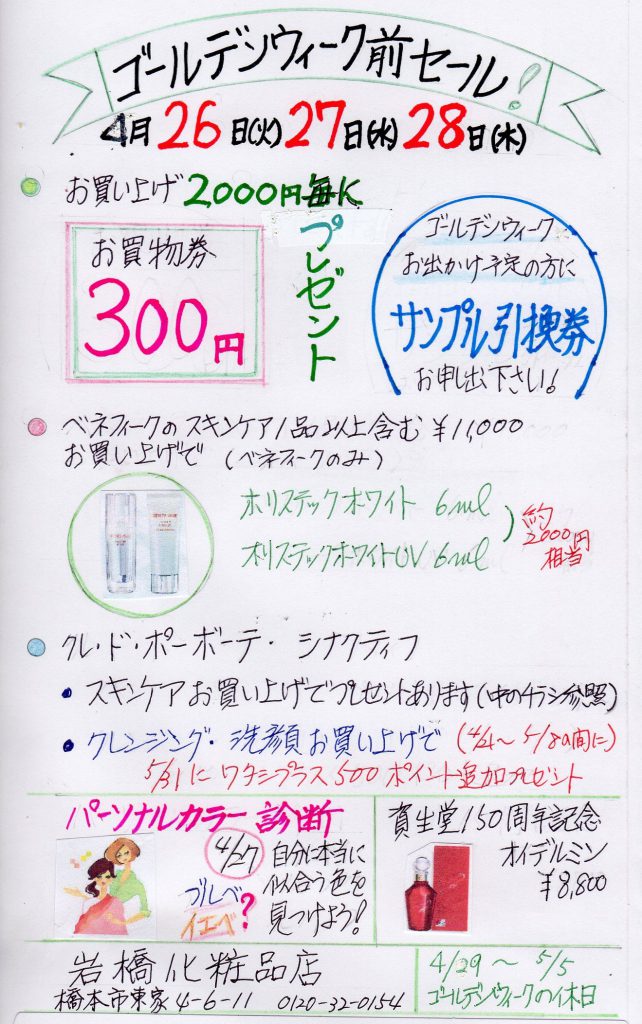 ゴールデンウィーク前セール!
4月26日(火)27日(水)28日(木)
お買い上げ2000円毎に
お買物券
300円
プレゼント
ゴールデンウィーク
お出かけ予定の方に
サンプル引換券
お申出下さい!
ベネフィークのスキンケア1品以上含む ¥11,000
お買い上げで (ベネフィークのみ)
ホリステックホワイト 6ml
ホリステックホワイトUV 6ml
約
2000円
相当
クレ・ド・ポーボーテ・シナクティフ
・スキンケアお買い上げでプレゼントあります(中のチラシ参照)
・クレンジング・洗顔お買い上げで (4/24〜5/8の間に)
5/31にワタシプラス500ポイント追加プレゼント
パーソナルカラー診断
4/27
ブルベ
イエベ?
自分に本当に
似合う色を
見つけよう!
資生堂150周年記念
オイデルミン
¥8,800
岩橋化粧品店
橋本市東家4-6-11 0120-32-0154
4/29〜5/5
ゴールデンウィークの休日